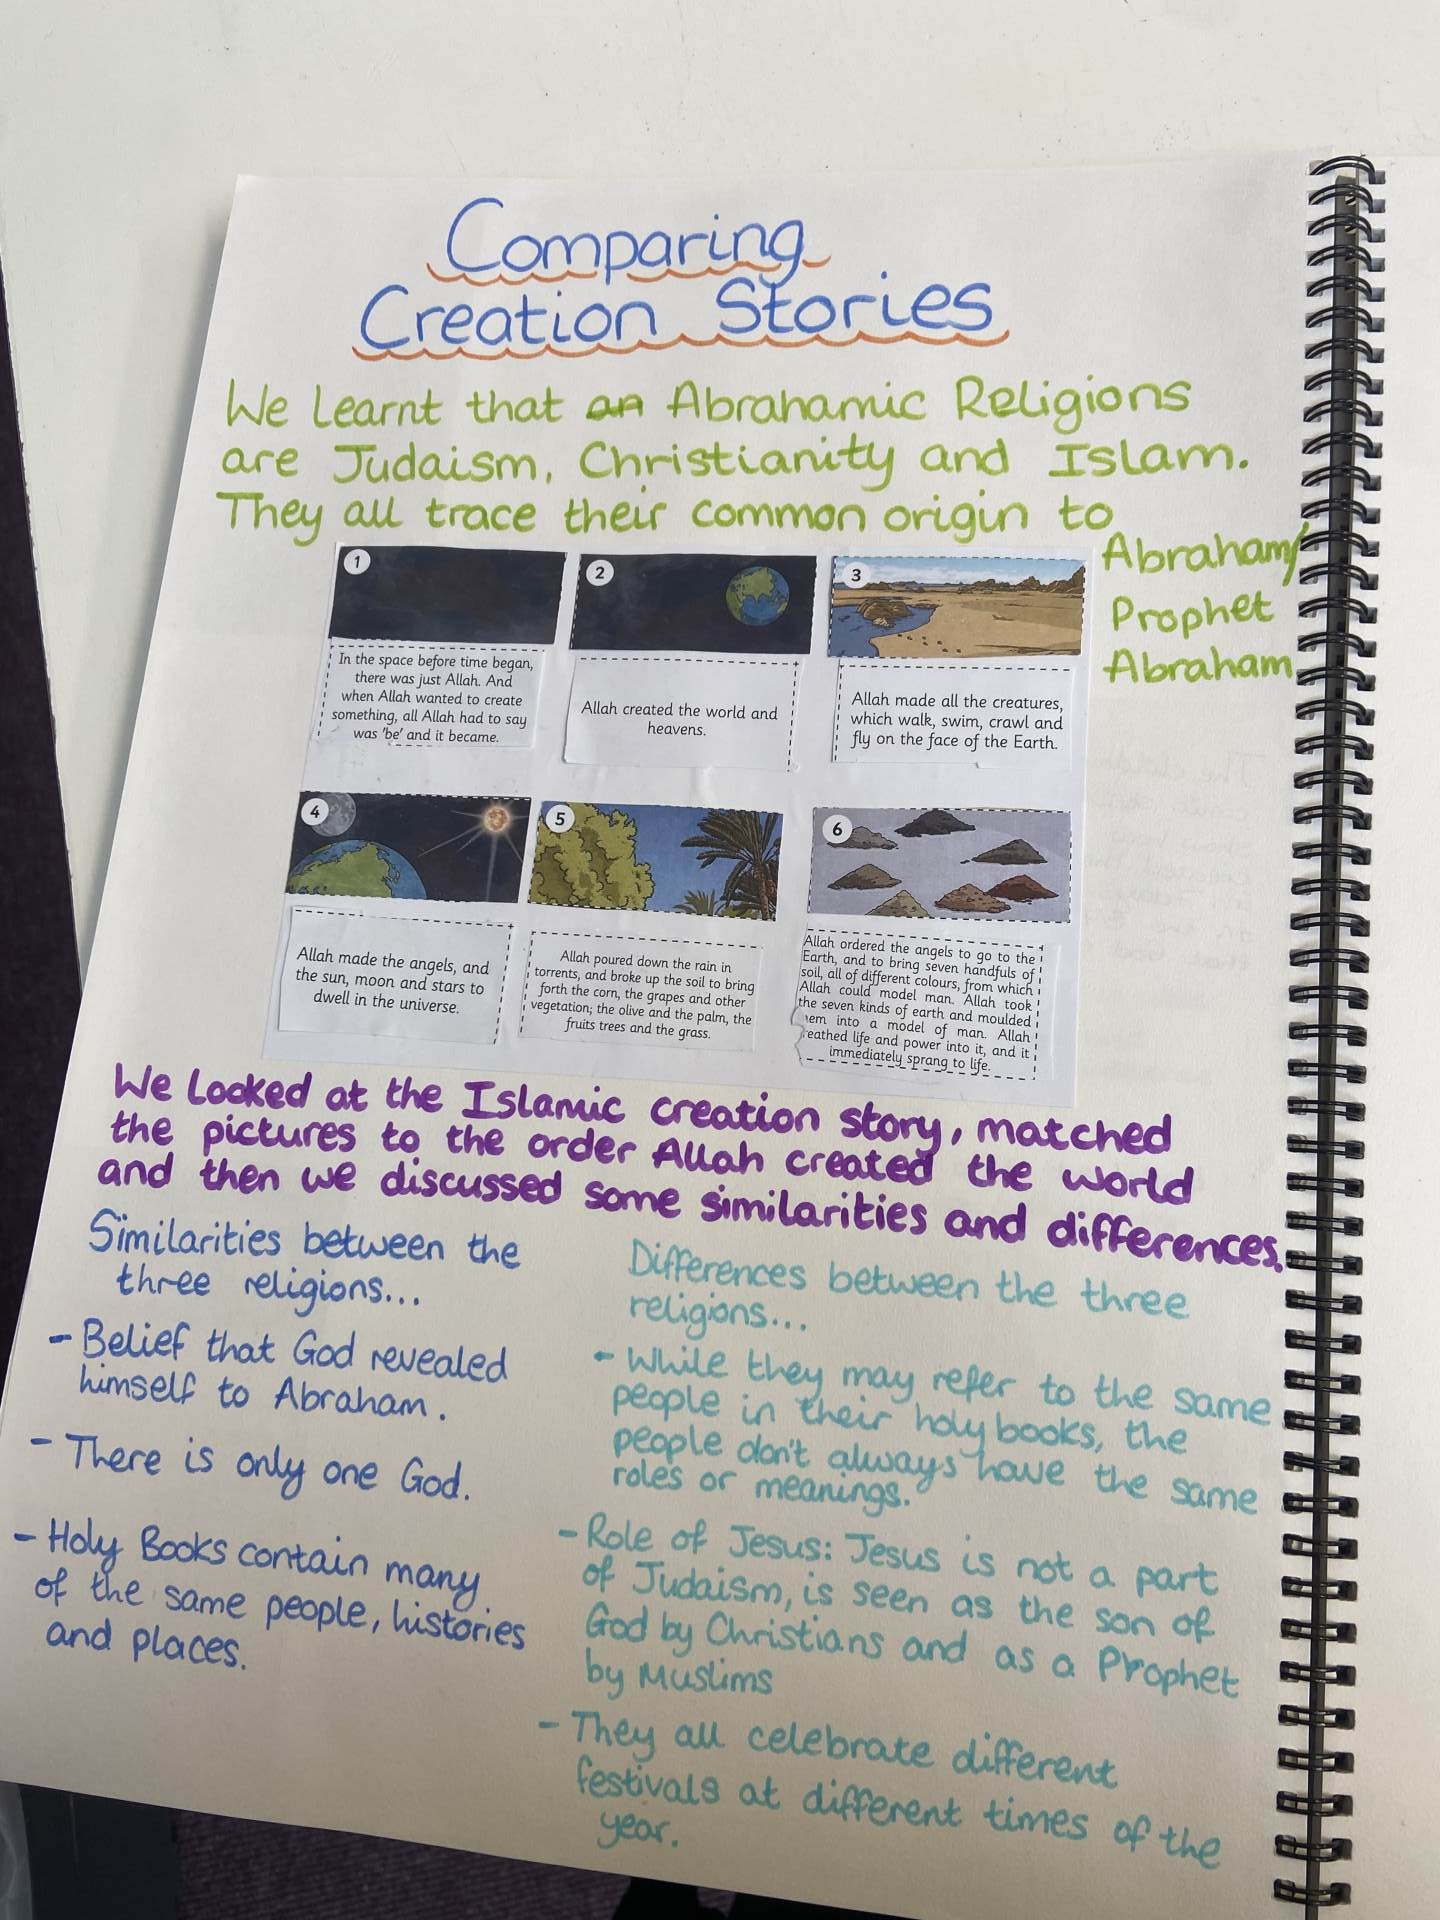 Comparing
Creation Stories
We learnt that an Abrahamic Religions
are Judaism, Christianity and Islam.
They all trace their common origin to
Abraham/
Prophet
Abraham
1
In the space before time began,
there was just Allah. And
when Allah wanted to create
something, all Allah had to say
was 'be' and it became.
2
Allah created the world and
heavens.
3
Allah made all the creatures,
which walk, swim, crawl and
fly on the face of the Earth.
4
Allah made the angels, and
the sun, moon and stars to
dwell in the universe.
5
Allah poured down the rain in
torrents, and broke up the soil to bring
forth the corn, the grapes and other
vegetation; the olive and the palm, the
fruits trees and the grass.
6
Allah ordered the angels to go to the
Earth, and to bring seven handfuls of
soil, all of different colours, from which
Allah could model man. Allah took
the seven kinds of earth and moulded
into a model of man. Allah
life and power into it, and it
immediately sprang to life.
We looked at the Islamic creation story, matched
the pictures to the order Allah created the world
and then we discussed some similarities and differences.
Similarities between the
three religions...
- Belief that God revealed
himself to Abraham.
- There is only one God.
- Holy Books contain many
of the same people, histories
and places.
Differences between the three
religions...
- While they may refer to the same
people in their holy books, the
people don't always have the same
roles or meanings.
- Role of Jesus: Jesus is not a part
of Judaism, is seen as the son of
God by Christians and as a Prophet
by Muslims
- They all celebrate different
festivals at different times of the
year.